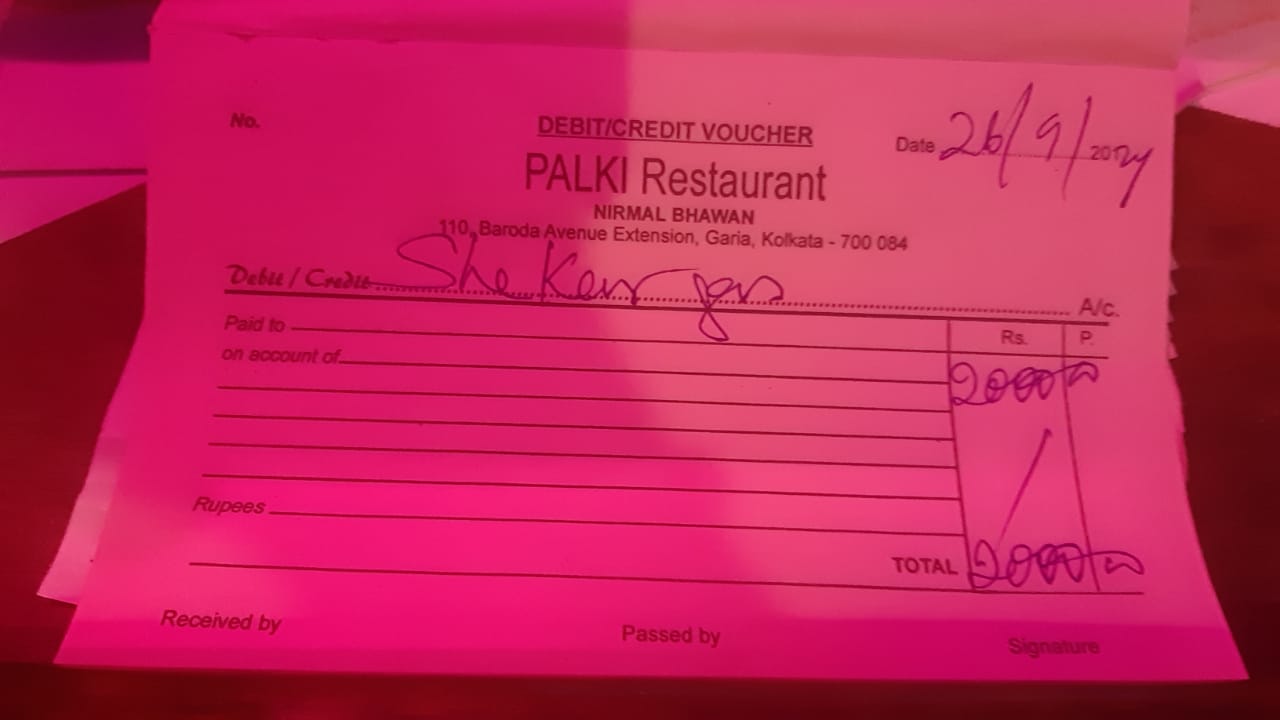 No.
DEBIT/CREDIT VOUCHER
Date 26/9/2024
PALKI Restaurant
NIRMAL BHAWAN
110, Baroda Avenue Extension, Garia, Kolkata - 700 084
Debit / Credit She Ker A/c.
Paid to Rs. P.
on account of
2000/00
Rupees
TOTAL 2000/00
Received by Passed by Signature